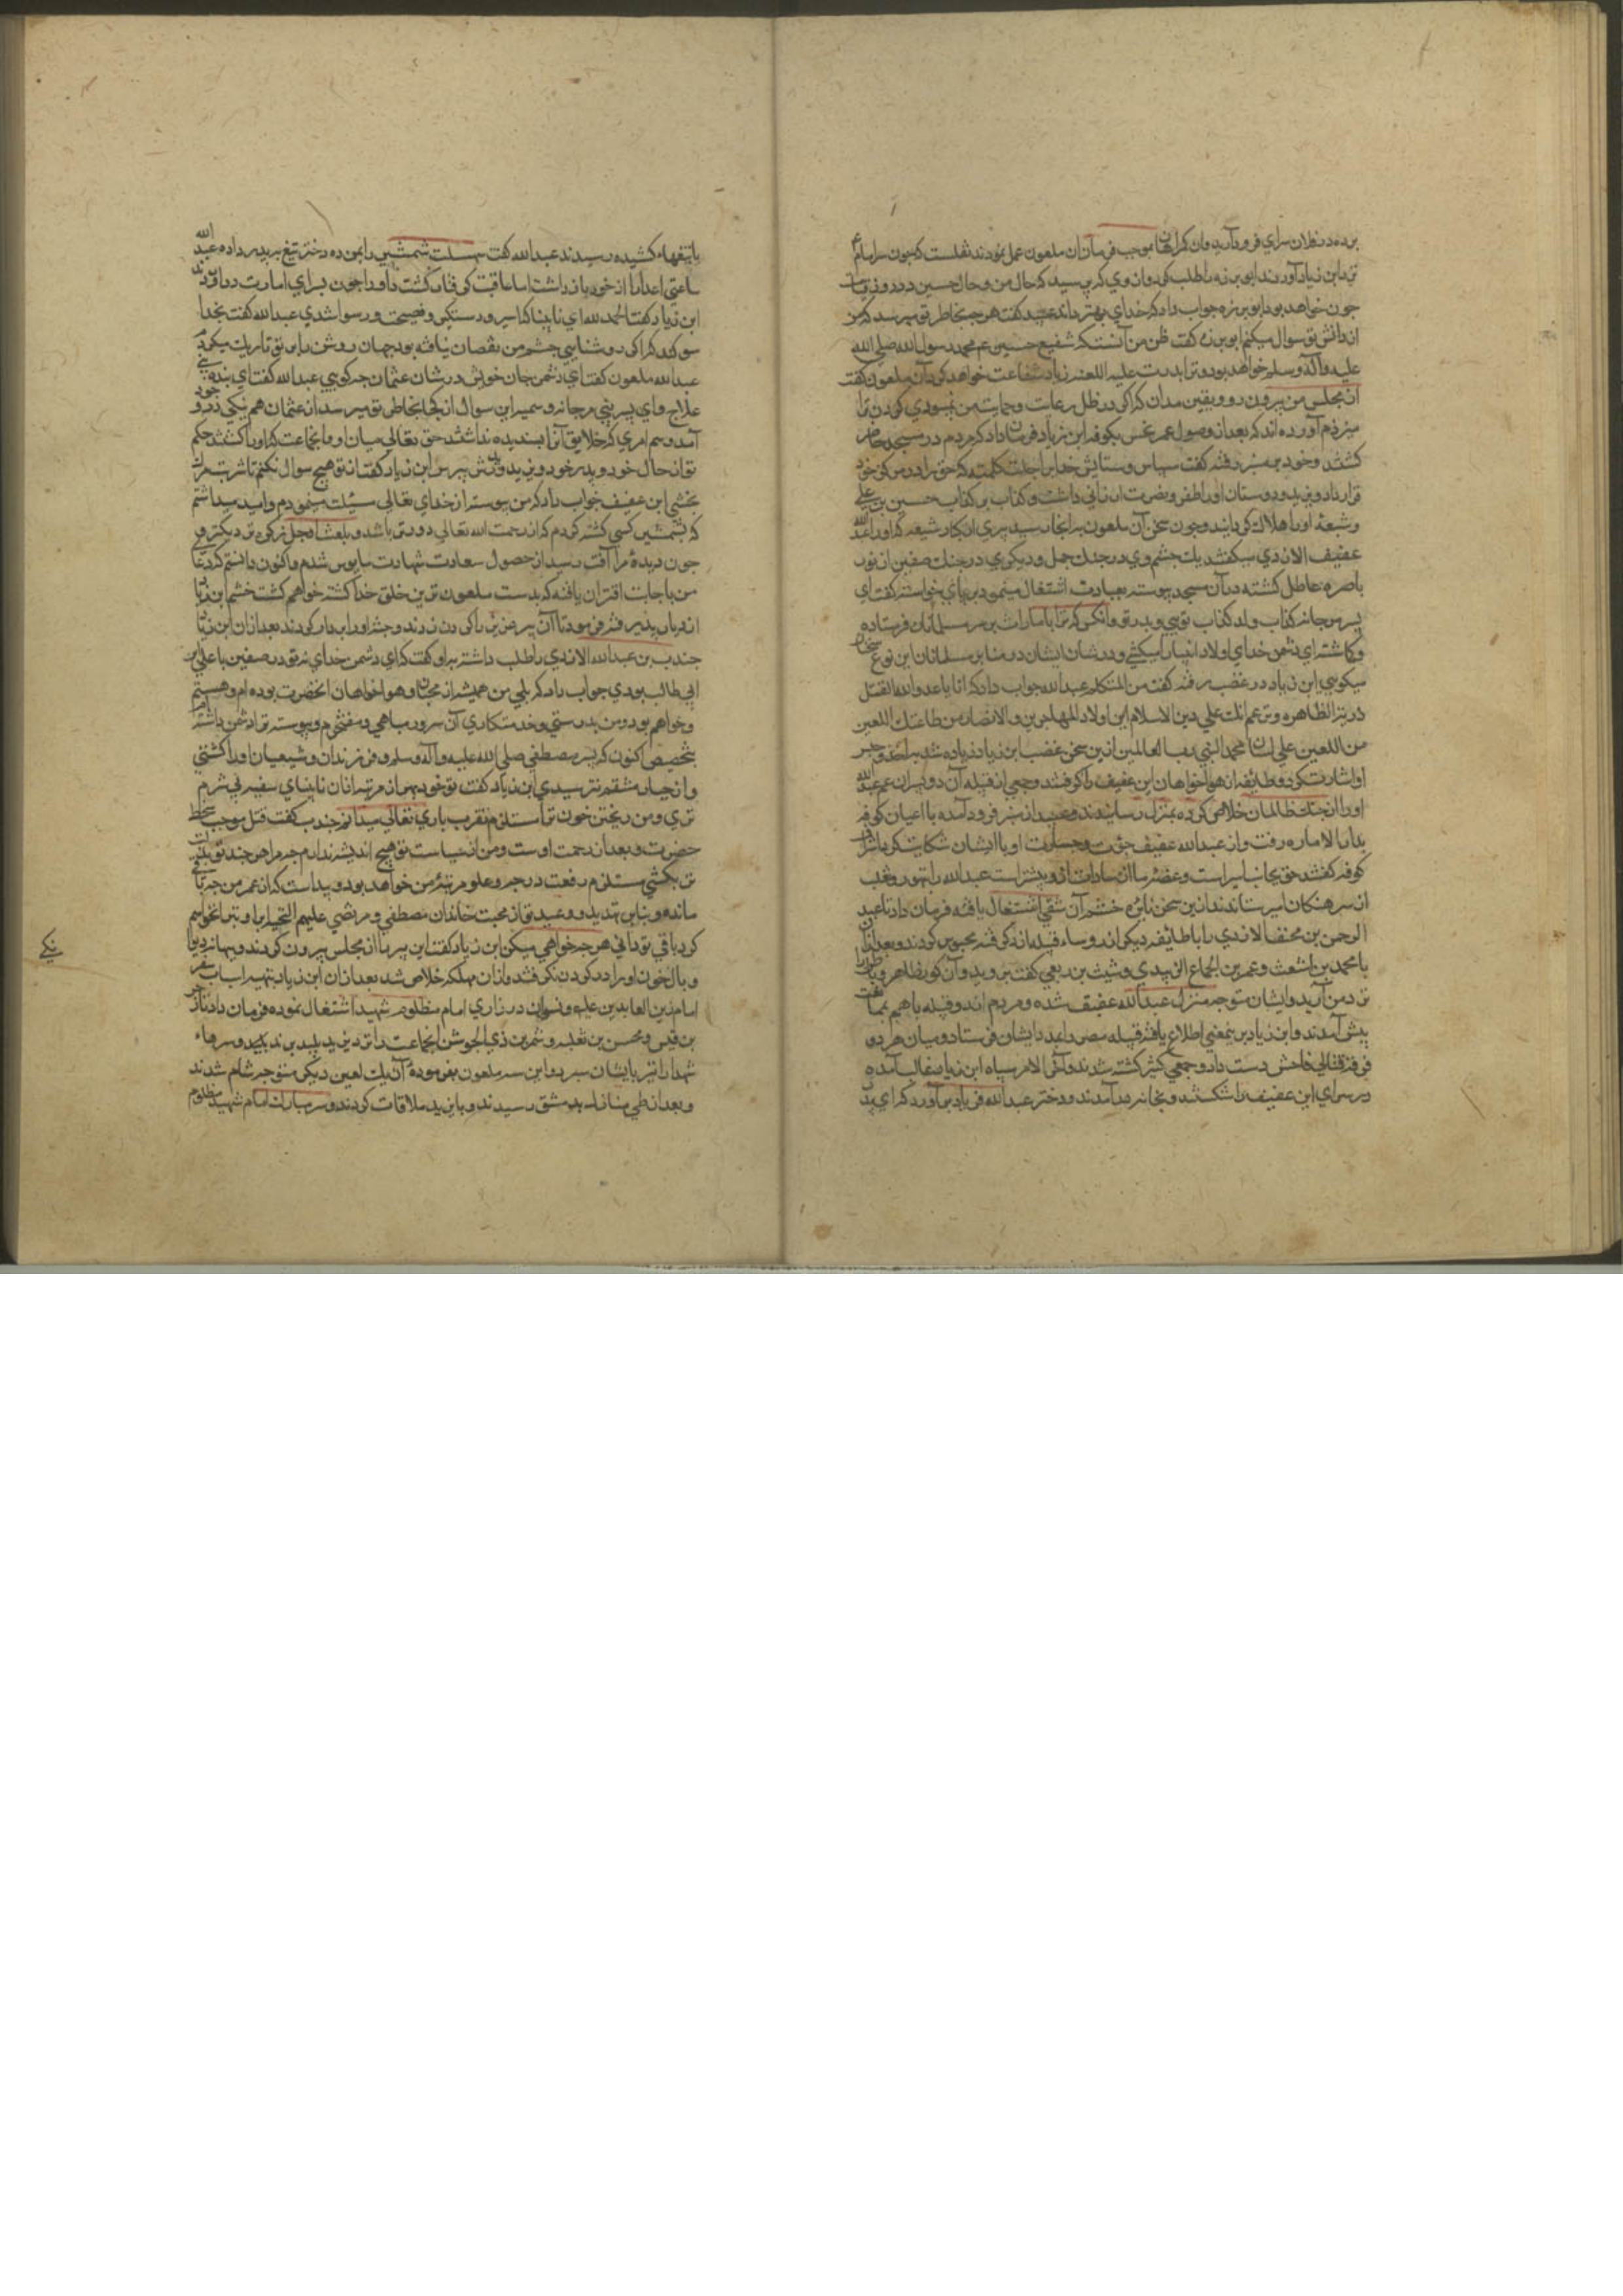 برده در فلان سراي فرود آريد وان كراهان بموجب فرمان ان ملعون عمل نمودند نقلست كه چون سر امام
نزد ابن زياد آوردند ابو برزه را طلب كرد و از وي پرسيد كه حال من و حال حسين در روز قيامت
چون خواهد بود ابو برزه جواب داد كه خداي بهتر داند عبيد كفت هرچه بخاطر تو ميرسد كه من
از دانش تو سوال ميكنم ابو برزه كفت ظن من آنست كه شفيع حسين محمد رسول الله صلي الله
عليه وآله وسلم خواهد بود و ترا پدرت عليه اللعنه زياد شفاعت خواهد كرد آن ملعون كفت
از مجلس من بيرون رو و يقين ميدان كه اكر در ظل رعايت و حمايت من نبودي كردن ترا
ميزدم آورده اند كه بعد از وصول عمر نحس بكوفه ابن زياد فرمان داد كه مردم در مسجد حاضر
كشتند و خود بر منبر رفته كفت سپاس و ستايش خدايرا جلت كلمته كه حق را در مركز خود
قرار داد و يزيد و دوستان او را ظفر و نصرت ارزاني داشت و كذاب بن كذاب حسين بن علي
و شيعه او را هلاك كردانيد و چون سخن آن ملعون بدانجا رسيد پيري از كبار شيعه كه او را عبد الله
عفيف الازدي ميكفتند يك چشم وي در جنك جمل و ديكري در جنك صفين از نور
باصره عاطل كشته در آن مسجد پيوسته بعبادت اشتغال مينمود بر پاي خواسته كفت اي
پسر مرجانه كذاب ولد كذاب تويي و پدر تو و آنكس كه ترا بامارت بر سر مسلمانان فرستاده
و كماشته اي دشمن خداي اولاد انبيا را ميكشي و در شان ايشان در منابر مسلمانان اين نوع سخنان
ميكويي ابن زياد در غضب رفته كفت من المتكلم عبد الله جواب داد كه انا يا عدو الله القتل
ذرية الطاهره و تزعم انك علي دين الاسلام اين اولاد المهاجرين و الانصار من طاعتك اللعين
من اللعين علي لسان محمد النبي رب العالمين ازين سخن غضب ابن زياد زياده شد
او اشارت كرد و طائفه از هواخواهان ابن عفيف را كرفتند و جمعي از قبيله آن دو پسران عم عبد الله
او را از جنك ظالمان خلاص كرده بمنزل رسانيدند و عبيد از منبر فرود آمده با اعيان كوفه
بدار الاماره رفت و از عبد الله عفيف جرات و جسارت او با ايشان شكايت كرد اشراف
كوفه كفتند حق بجانب امير است
از سرهنكان امير ستاندند ازين سخن نايره خشم آن شقي اشتعال يافته فرمان داد تا عبد
الرحمن بن مخنف الازدي را با طايفه ديكر از رؤساء قبيله ازد كرفته محبوس كردند و بعد ازان
با محمد بن اشعث و عمر بن الحجاج الزبيدي و شيث بن ربعي كفت برويد و آن كور بظاهر و باطن را
نزد من آريد و ايشان متوجه منزل عبد الله عفيف شده و مردم ازد و قبيله باهم بممانعت
پيش آمدند و ابن زياد بر اين معني اطلاع يافته قبيله مضر را بمدد ايشان فرستاد و ميان هر دو
فرقه قتالي فاحش دست داد و جمعي كثير كشته شدند و آخر الامر سپاه ابن زياد غالب آمده
در سراي ابن عفيف را شكستند و بخانه در آمدند و دختر عبد الله فرياد بر آورد كه اي پدر
با تيغهاء كشيده رسيدند عبد الله كفت سهلست شمشير را بمن ده دختر تيغ بپدر داده عبد الله
ساعتي اعدا را از خود باز داشت اما عاقبت كرفتار كشت و او را چون بسراي امارت در آوردند
ابن زياد كفت الحمد لله اي نابينا كه اسير و دستكير و فضيحت و رسوا شدي عبد الله كفت بخدا
سوكند كه اكر روشنايي چشم من نقصان نيافته بود جهان روشن را بر تو تاريك ميكردم
عبد الله ملعون كفت اي دشمن جان خويش در شان عثمان چه كويي عبد الله كفت اي بنده بني
علاج و اي پسر مرجانه و سميه اين سوال از كجا بخاطر تو ميرسد از عثمان هم نيكي در وجود
آمد و هم امري كه خلايق آنرا پسنديده نداشتند حق تعالي ميان او و انجماعت كه او را كشتند حكم
تو از حال خود و پدر خود و يزيد و پدرش بپرس ابن زياد كفت از تو هيچ سوال نكنم تا شربت مرك
بچشي ابن عفيف جواب داد كه من پيوسته از خداي تعالي مسئلت مينمودم و اميد ميداشتم
كه بشمشير كسي كشته كردم كه از رحمت الله تعالي دورتر باشد
چون ديده مرا آفت رسيد از حصول سعادت شهادت مايوس شدم و اكنون دانستم كه دعاء
من باجابت اقتران يافته كه بدست ملعون ترين خلق خدا كشته خواهم كشت خشم ابن زياد
جندب بن عبد الله الازدي را طلب داشته باو كفت كه اي دشمن خداي نه تو در صفين با علي بن
ابي طالب بودي جواب داد كه بلي من هميشه از محبان و هواخواهان آنحضرت بوده ام و هستم
و خواهم بود و من بدرستي و خدمتكاري آن سرور مباهي و مفتخرم و پيوسته ترا دشمن داشته ام
بتخصيص اكنون كه پسر مصطفي صلي الله عليه وآله وسلم و فرزندان و شيعيان او را كشتي
و از جبار منتقم نترسيدي ابن زياد كفت تو خود بمراتب ازان نابيناي سفيه بي شرم
تري و من ريختن خون ترا مستلزم تقرب باري تعالي ميدانم جندب كفت قتل موجب سخط
حضرت و بعد از رحمت اوست و من از سياست تو هيچ انديشه ندارم
بكشي مستلزم رفعت درجه و علو مرتبه من خواهد بود و پيداست كه از عمر من چه باقي
مانده و بنابر تهديد و وعيد تو از محبت خاندان مصطفي و مرتضي عليهم التحيه ابا و تبرا نخواهم
كرد باقي تو داني هرچه خواهي ميكن ابن زياد كفت اين پير را از مجلس بيرون كردند
و بال خون او را در كردن نكرفتند و ازان مهلكه خلاص شد بعد ازان ابن زياد بتهيه اسباب سفر
امام زين العابدين عليه و نسوان و ذراري امام مظلوم شهيد اشتغال نموده فرمان داد تا زجر
بن قيس و محسن بن ثعلبه و شمر بن ذي الجوشن انجماعت را نزد يزيد پليد برند و سرهاء
شهدا را نيز بايشان سپرد و اين سه ملعون بفرموده آن يك لعين ديكر متوجه شام شدند
و بعد از طي منازل بدمشق رسيدند و با يزيد ملاقات كردند و سر مبارك امام شهيد مظلوم